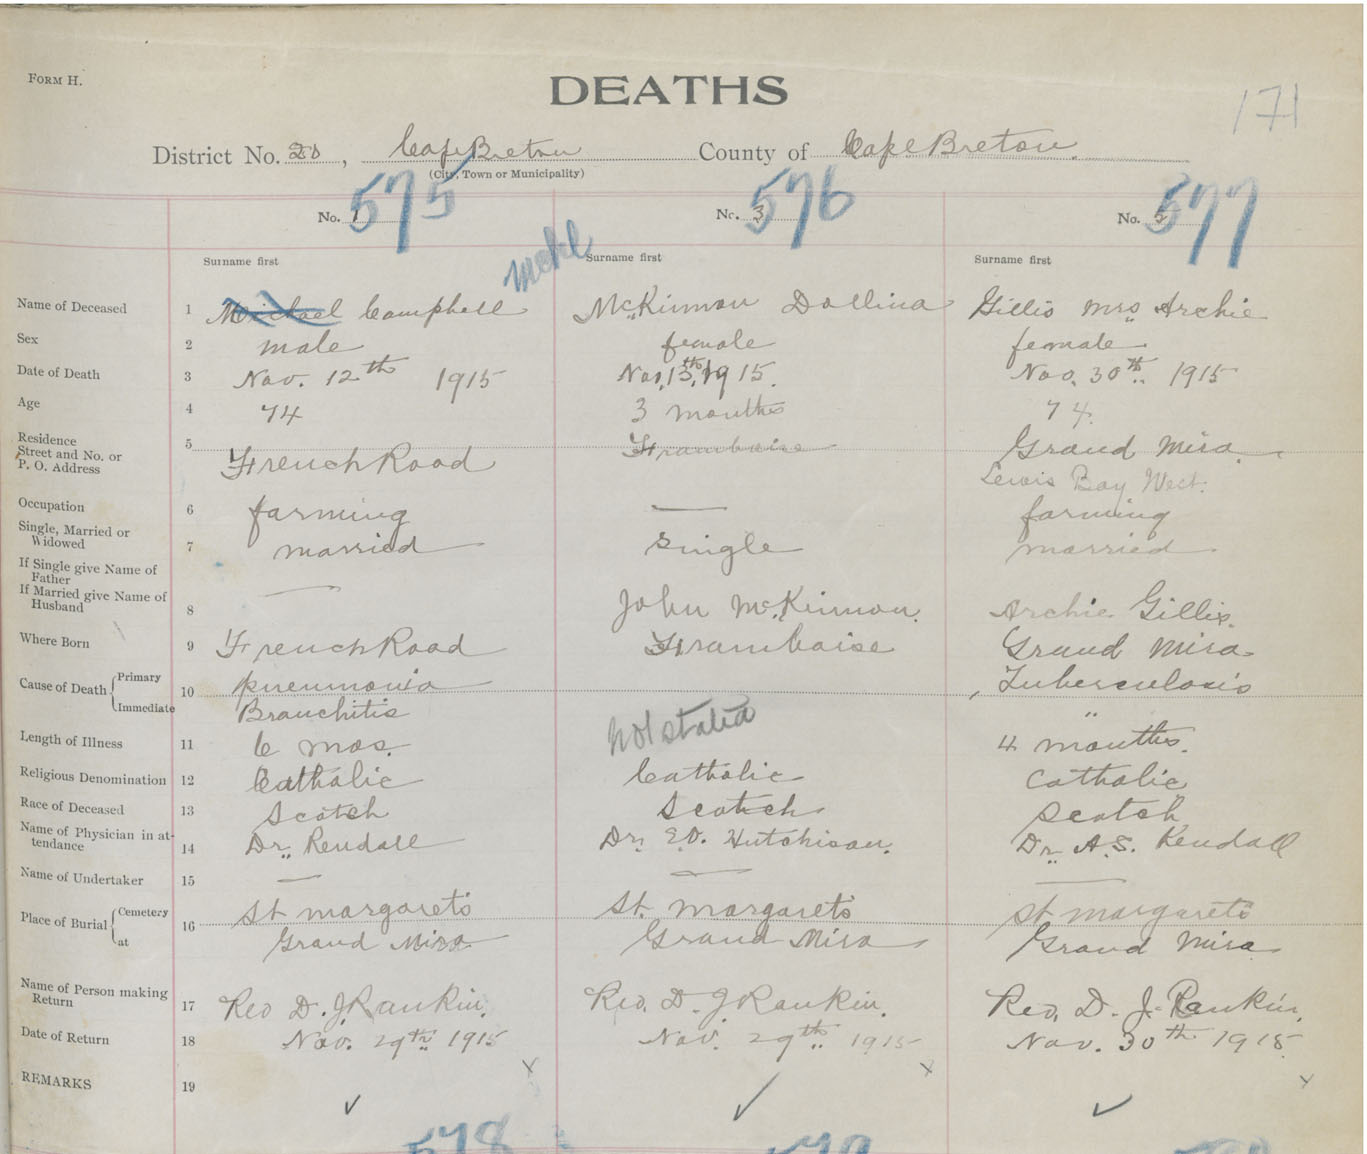 FORM H.
DEATHS
171
District No. 20, Cape Breton County of Cape Breton.
(City, Town or Municipality)
No. 1 575 No. 3 576 No. 577
Surname first Surname first Surname first
Name of Deceased 1 Michael Campbell McKinnon Dollina Gillis Mrs Archie
Sex 2 male female female
Date of Death 3 Nov. 12th 1915 Nov. 13th, 1915. Nov. 30th 1915
Age 4 74 3 months 74.
Residence
Street and No. or
P. O. Address 5 French Road Framboise Grand Mira
Lewis Bay West.
Occupation 6 farming — farming
Single, Married or
Widowed 7 married single married
If Single give Name of
Father
If Married give Name of
Husband 8 — John McKinnon. Archie Gillis.
Where Born 9 French Road Framboise Grand Mira
Cause of Death { Primary 10 pneumonia Tuberculosis
Immediate Branchitis not stated "
Length of Illness 11 6 mos. 4 months.
Religious Denomination 12 Catholic Catholic Catholic
Race of Deceased 13 Scotch Scotch Scotch
Name of Physician in at-
tendance 14 Dr. Kendall Dr. E.O. Hutchison. Dr. A.S. Kendall
Name of Undertaker 15 — — —
Place of Burial { Cemetery 16 St margarets St. Margarets St margarets
at Grand Mira Grand Mira Grand Mira
Name of Person making
Return 17 Rev D. J. Rankin. Rev. D. J. Rankin. Rev. D. J. Rankin.
Date of Return 18 Nov. 29th 1915 Nov. 29th 1915 Nov. 30th 1915
REMARKS 19
578